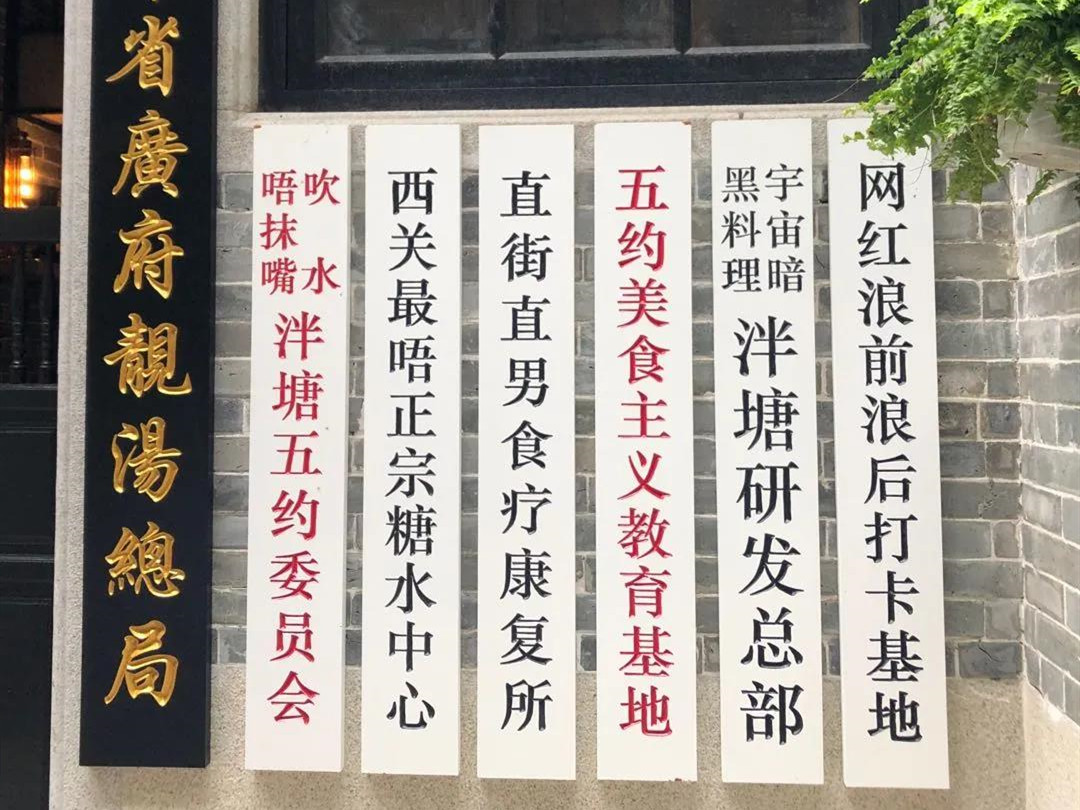 网红浪前浪后打卡基地
宇宙暗
黑料理
泮塘研发总部
五约美食主义教育基地
直街直男食疗康复所
西关最唔正宗糖水中心
吹水
唔抹嘴
泮塘五约委员会
省廣府靚湯總局